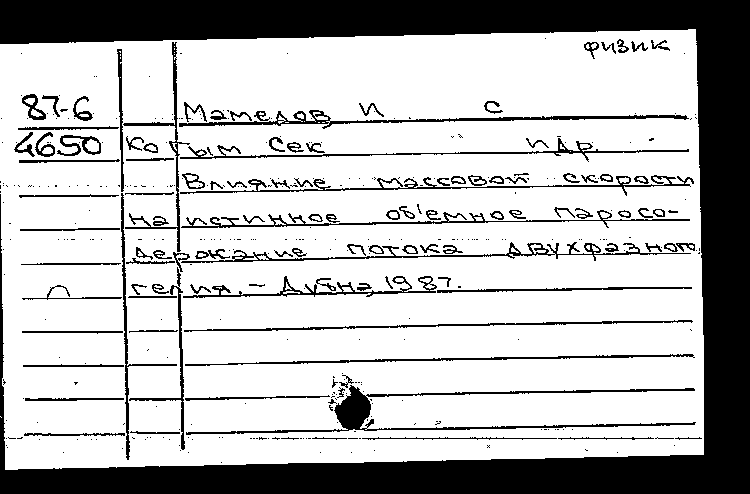 физик
87-6 Мамедов И С
4650 Ко Гым Сек и др.
Влияние массовой скорости
на истинное об'емное паросо-
держание потока двухфазного
гелия. - Дубна, 1987.